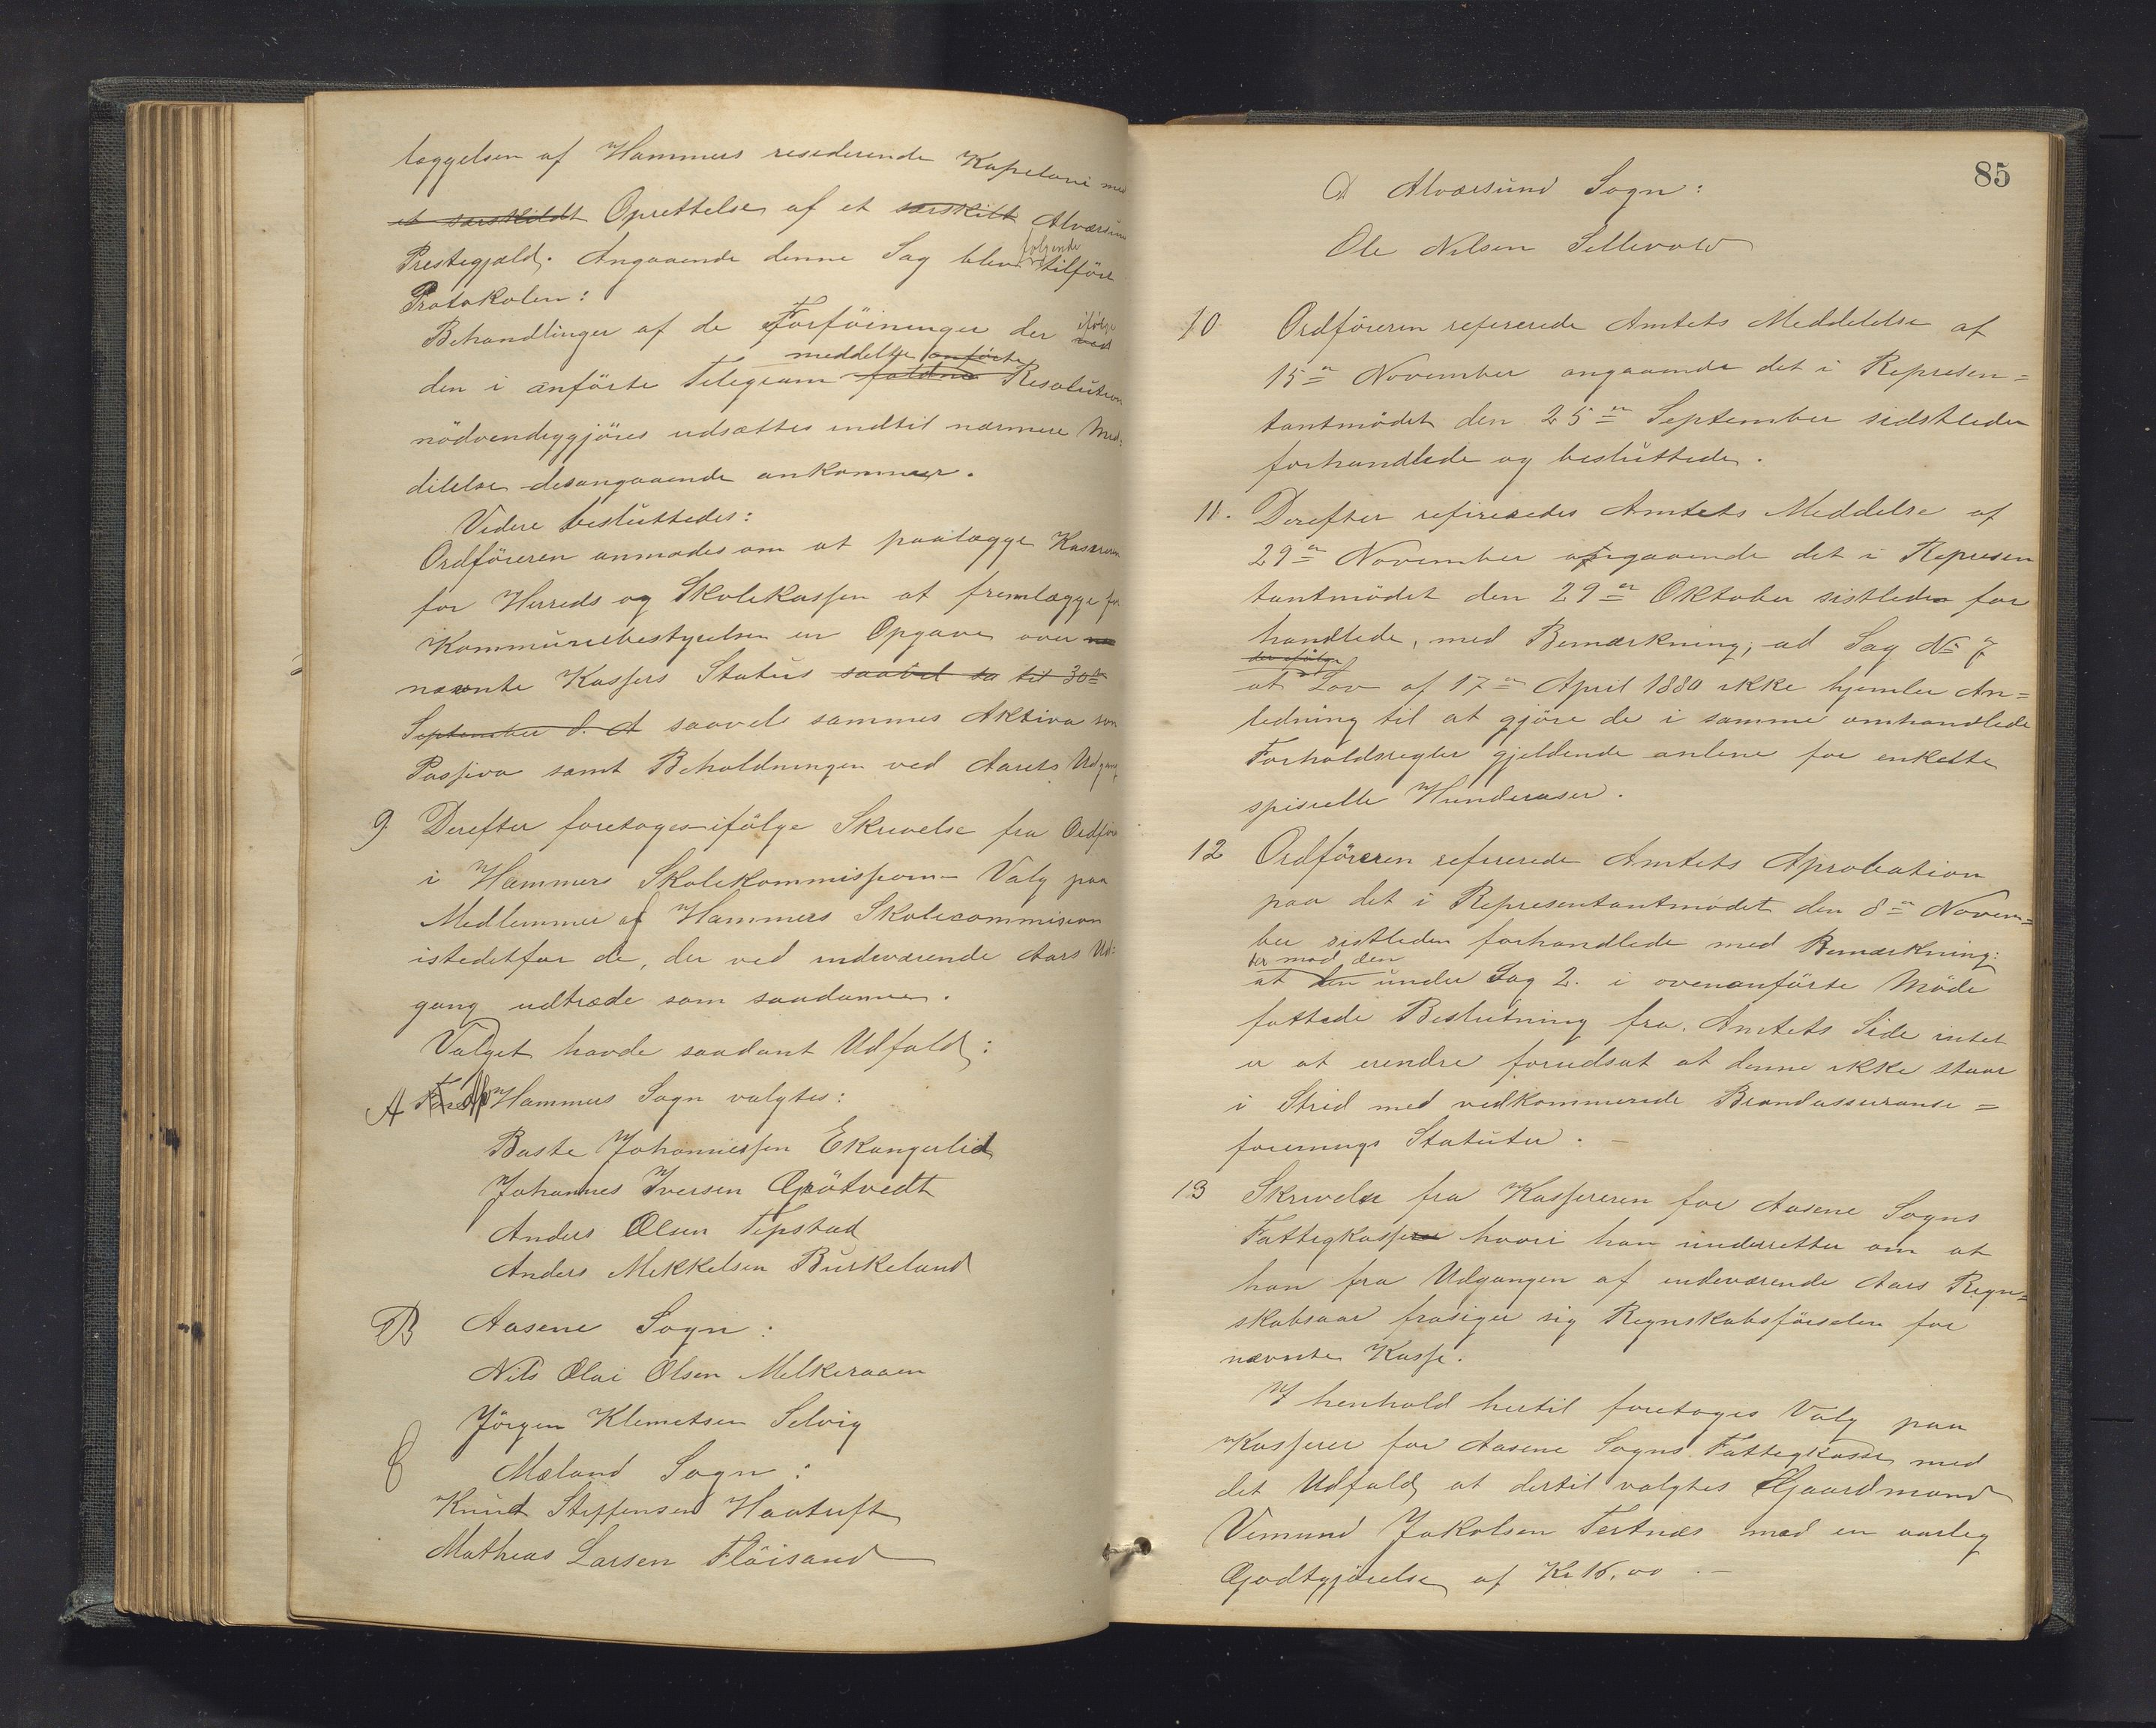 læggelsen af Hammers residerende Kapelani med
et særskildt Oprettelse af et særskilt Alværsun
Prestegjæld. Angaaende denne Sag blev følgende tilført
Protokolen:
Behandlinger af de Forføininger der ifølge ved
den i anførte Telegram meddelte anførte faldne Resolution
nödvendiggjöres udsættes indtil nærmere Med:
dilelse desangaaende ankommer.
Videre besluttedes:
Ordföreren anmodes om at paalægge Kassereren
for Herreds og Skolekassen at fremlægge for
Kommunebestyrelsen en Opgave over
nævnte Kassers Status saavel sa til 30te
September d. A saavel sammes Aktiva som
Passiva samt Beholdningen ved Aarets Udgang
9 Derefter foretoges ifölge Skrivelse fra Ordför
i Hammers Skolekommission Valg paa
Medlemmer af Hammers Skolecommision
istedetfor de, der ved indeværende Aars Ud:
gang udtræde som saadanne.
Valget havde saadant Udfald:
A For Hammers Sogn valgtes:
Baste Johannessen Ekangerlid
Johannes Iversen Grötvedt
Anders Olsen Tepstad
Anders Mikkelsen Burkeland
B Aasene Sogn:
Nils Olai Olsen Melkeraaen
Jörgen Klemetsen Selvig
C Mæland Sogn:
Knut Steffensen Haatuft
Mathias Larsen Flöisand
85
D Alværsund Sogn:
Ole Nilsen Sellevold
10 Ordföreren refererede Amtets Meddelelse af
15de November angaaende det i Represen=
tantmödet den 25de September sidstleden
forhandlede og besluttede.
11. Derefter refereredes Amtets Meddelse af
29de November angaaende det i Represen
tantmödet den 29de Oktober sistleden for
handlede, med Bemærkning, ad Sag No 7
der ifølge
at Lov af 17de April 1880 ikke hjemler An=
ledning til at gjöre de i samme omhandlede
Forholdsregler gjeldende anlene for enkelte
spisielle Hunderaser.
12 Ordföreren refererede Amtets Aprobation
paa det i Representantmödet den 8de Novem=
ber sistleden forhandlede med Bemærkning:
der mod den
at den under Sag 2. i ovenanförte Möde
fattede Beslutning fra Amtets Side intet
er at erendre forudsat at denne ikke staar
i Strid med vedkommerede Brandasseuranse=
forenings Statuter. –
13 Skrivelse fra Kassereren for Aasene Sogns
Fattigkasse hvori han underretter om at
han fra Udgangen af indeværende Aars Regn=
skabsaar frasiger sig Regnskabsförselen for
nævnte Kasse.
I henhold hertil foretoges Valg paa
Kasserer for Aasene Sogns Fattigkasse med
det Udfald at dertil valgtes Gaardmand
Vemund Jakobsen Tertnæs med en aarleg
Godtgjörelse af Kr 16,00 . –